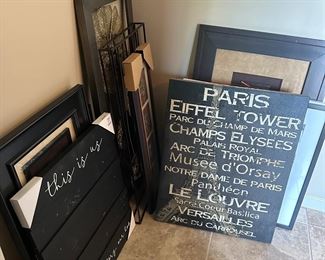 this is us
PARIS
EIFFEL TOWER
PARC DU CHAMP DE MARS
CHAMPS ELYSEES
PALAIS ROYAL
ARC DE TRIOMPHE
Musee d'Orsay
NOTRE DAME DE PARIS
Pantheon
LE LOUVRE
Sacre Coeur Basilica
VERSAILLES
ARC DU CARROUSEL